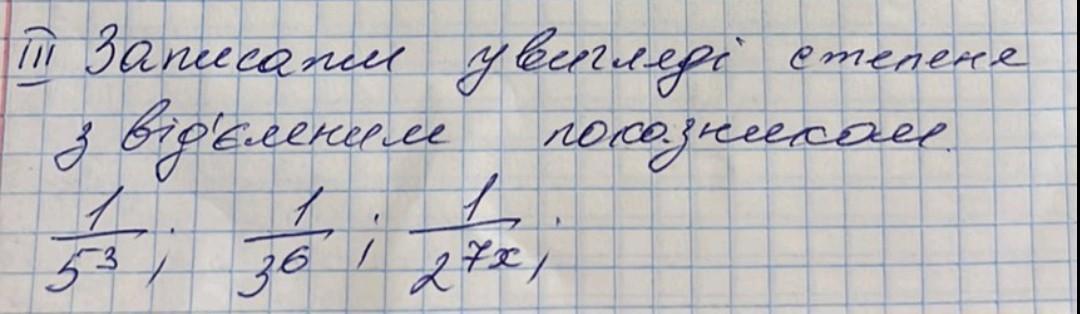 III Записати у вигляді степеня
з від'ємним показником.
1/5³ ; 1/3⁶ ; 1/2⁷ˣ ;